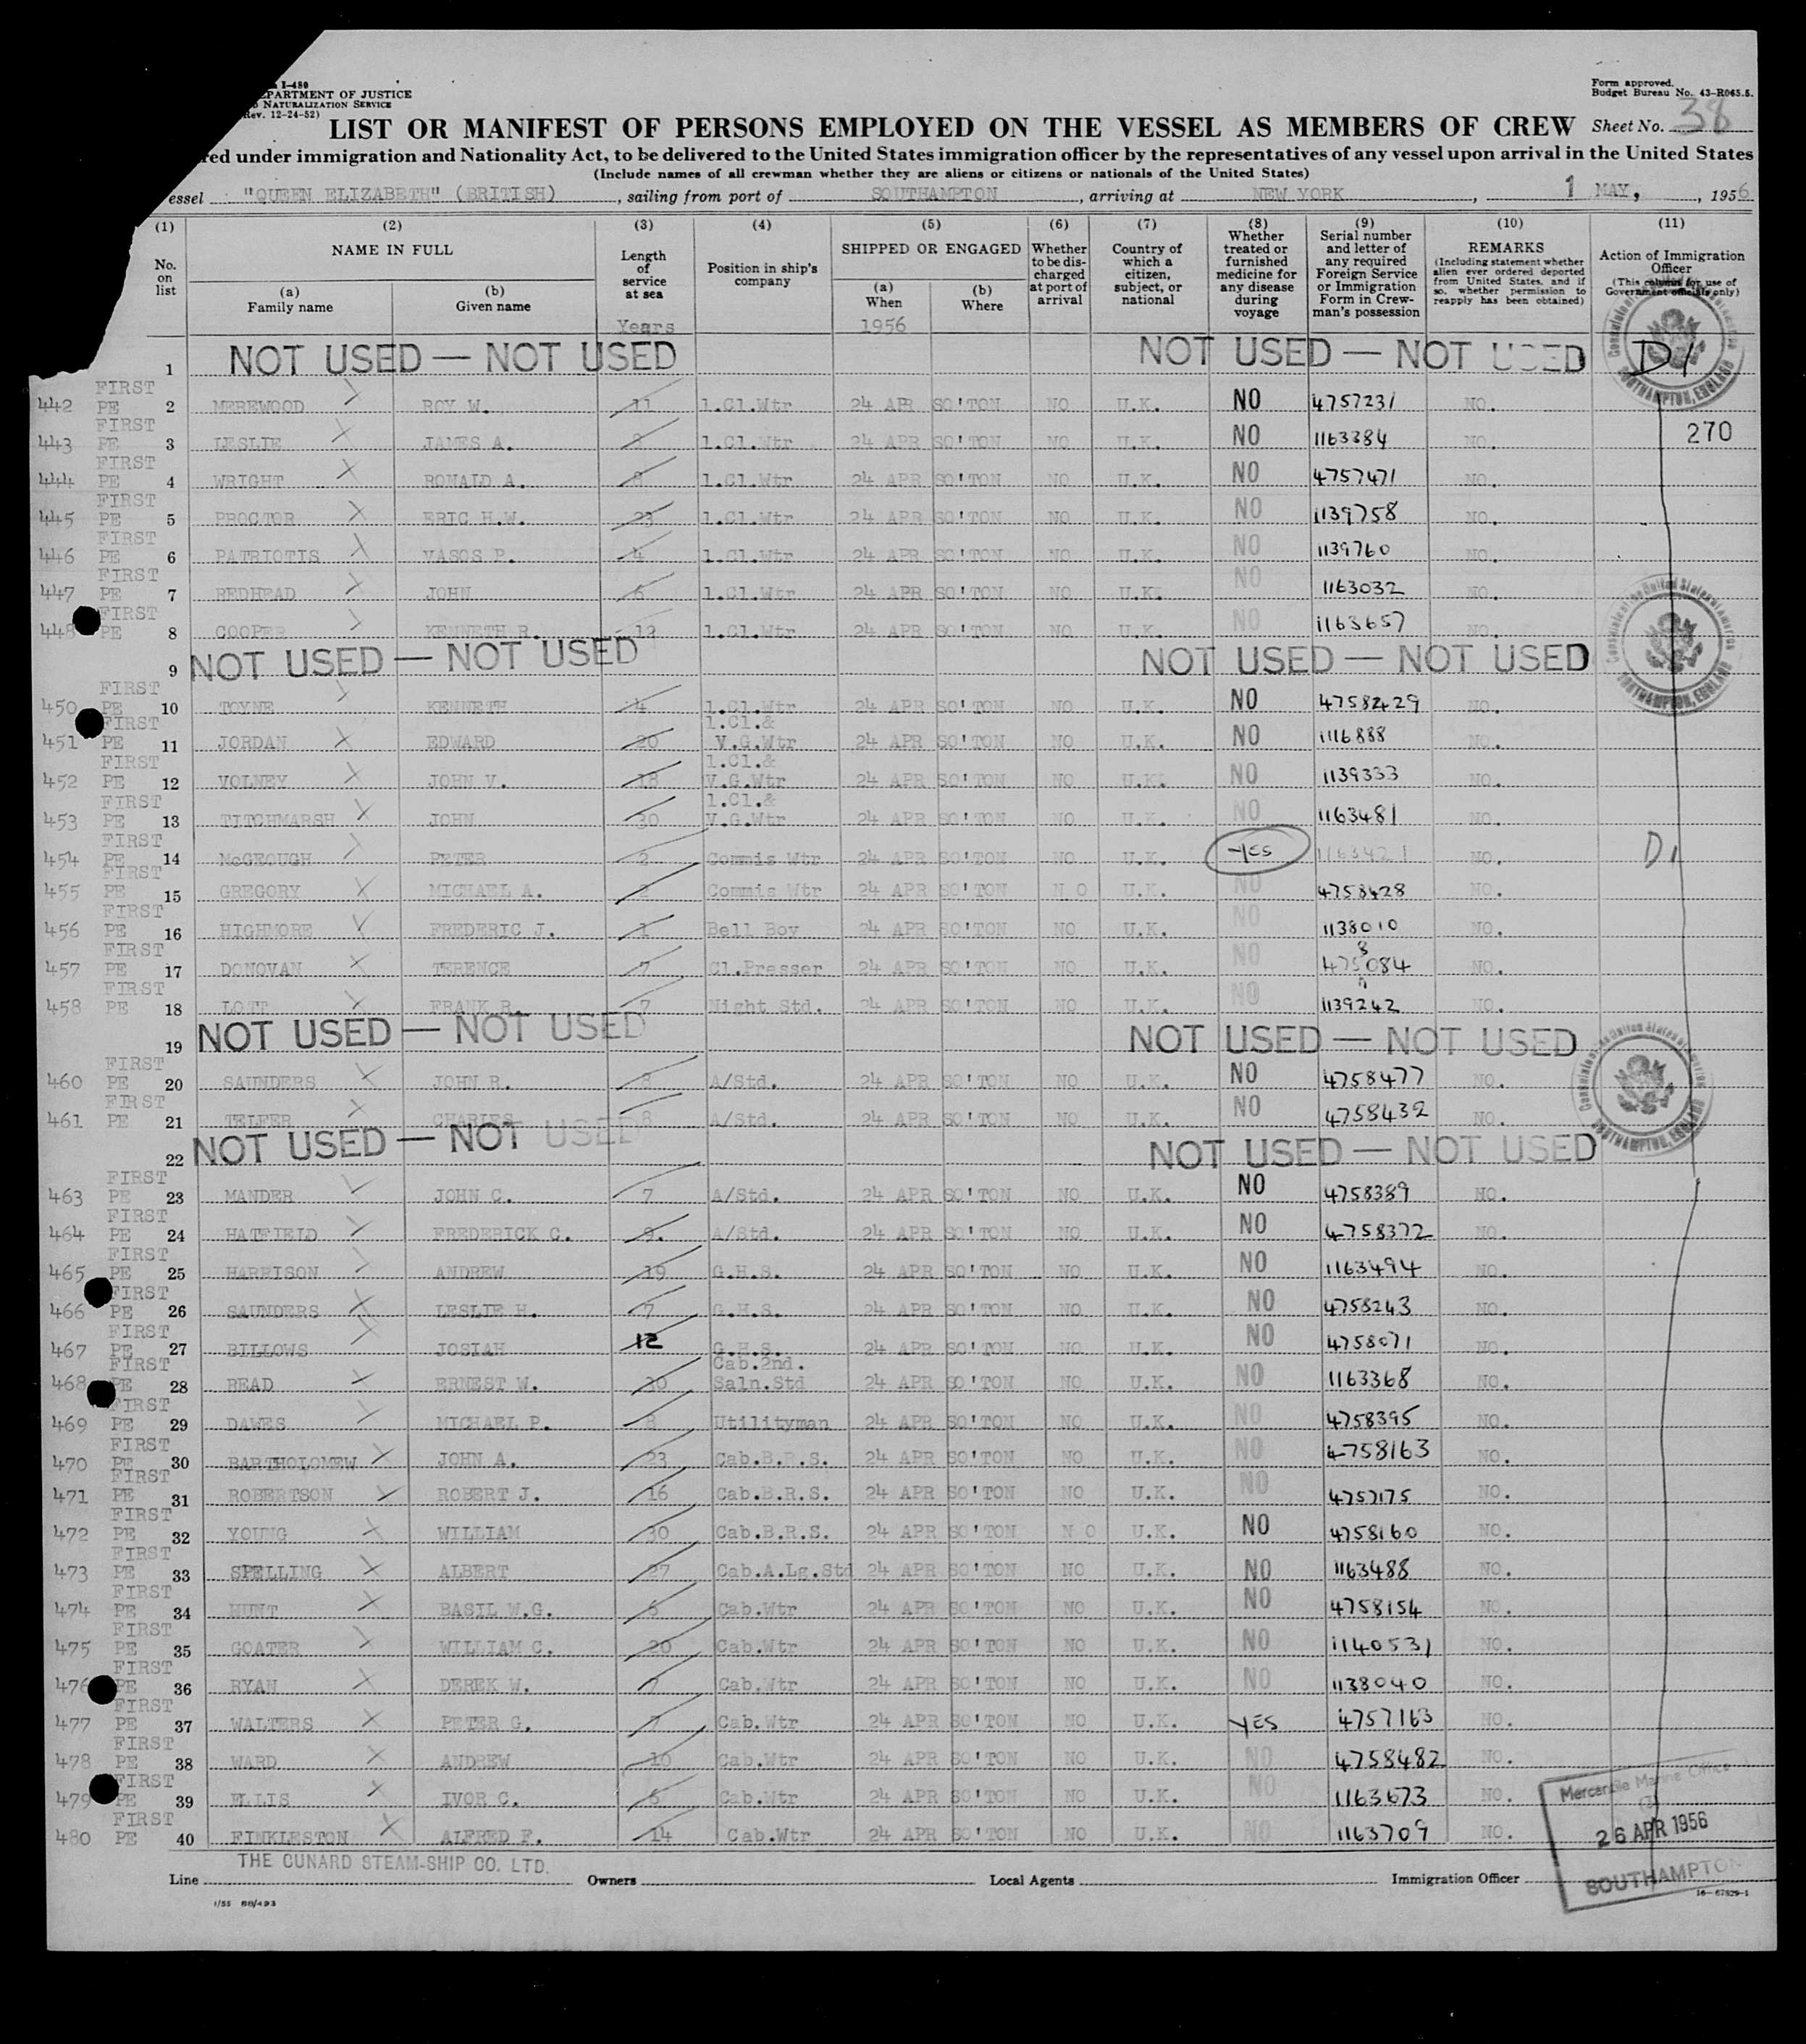 I-480
PARTMENT OF JUSTICE
NATURALIZATION SERVICE
Rev. 12-24-52)
Form approved.
Budget Bureau No. 43-R065.5.
LIST OR MANIFEST OF PERSONS EMPLOYED ON THE VESSEL AS MEMBERS OF CREW Sheet No. 38
red under immigration and Nationality Act, to be delivered to the United States immigration officer by the representatives of any vessel upon arrival in the United States
(Include names of all crewman whether they are aliens or citizens or nationals of the United States)
essel "QUEEN ELIZABETH" (BRITISH), sailing from port of SOUTHAMPTON, arriving at NEW YORK, 1 MAY, , 1956
(1) (2) (3) (4) (5) (6) (7) (8) (9) (10) (11)
No. on list
NAME IN FULL
(a) Family name
(b) Given name
Length of service at sea
Years
Position in ship's company
SHIPPED OR ENGAGED
(a) When
1956
(b) Where
Whether to be discharged at port of arrival
Country of which a citizen, subject, or national
Whether treated or furnished medicine for any disease during voyage
Serial number and letter of any required Foreign Service or Immigration Form in Crewman's possession
REMARKS
(Including statement whether alien ever ordered deported from United States, and if so, whether permission to reapply has been obtained)
Action of Immigration Officer
(This column for use of Government officials only)
1 NOT USED — NOT USED NOT USED — NOT USED D1
442 FIRST PE 2 MEREWOOD ROY W. 11 1.Cl.Wtr 24 APR SO'TON NO U.K. NO 4757231 NO.
443 FIRST PE 3 LESLIE JAMES A. 1.Cl.Wtr 24 APR SO'TON NO U.K. NO 1163384 NO. 270
444 FIRST PE 4 WRIGHT RONALD A. 1.Cl.Wtr 24 APR SO'TON NO U.K. NO 4757471 NO.
445 FIRST PE 5 PROCTOR ERIC H.W. 23 1.Cl.Wtr 24 APR SO'TON NO U.K. NO 1139758 NO.
446 FIRST PE 6 PATRIOTIS VASOS P. 4 1.Cl.Wtr 24 APR SO'TON NO U.K. NO 1139760 NO.
447 FIRST PE 7 REDHEAD JOHN 6 1.Cl.Wtr 24 APR SO'TON NO U.K. NO 1163032 NO.
448 FIRST PE 8 COOPER KENNETH R. 12 1.Cl.Wtr 24 APR SO'TON NO U.K. NO 1163657 NO.
9 NOT USED — NOT USED NOT USED — NOT USED
450 FIRST PE 10 TOYNE KENNETH 4 1.Cl.Wtr 24 APR SO'TON NO U.K. NO 4758429 NO.
451 FIRST PE 11 JORDAN EDWARD 20 1.Cl.& V.G.Wtr 24 APR SO'TON NO U.K. NO 1116888 NO.
452 FIRST PE 12 VOLNEY JOHN V. 18 1.Cl.& V.G.Wtr 24 APR SO'TON NO U.K. NO 1139333 NO.
453 FIRST PE 13 TITCHMARSH JOHN 30 1.Cl.& V.G.Wtr 24 APR SO'TON NO U.K. NO 1163481 NO.
454 FIRST PE 14 McGEOUGH PETER 2 Commis Wtr 24 APR SO'TON NO U.K. YES 1163421 NO. D1
455 FIRST PE 15 GREGORY MICHAEL A. 2 Commis Wtr 24 APR SO'TON N O U.K. NO 4758428 NO.
456 FIRST PE 16 HIGHMORE FREDERIC J. 1 Bell Boy 24 APR SO'TON NO U.K. NO 1138010 NO.
457 FIRST PE 17 DONOVAN TERENCE 7 Cl.Presser 24 APR SO'TON NO U.K. NO 4758084 NO.
458 FIRST PE 18 LOTT FRANK R. 7 Night Std. 24 APR SO'TON NO U.K. NO 1139242 NO.
19 NOT USED — NOT USED NOT USED — NOT USED
460 FIRST PE 20 SAUNDERS JOHN R. 8 A/Std. 24 APR SO'TON NO U.K. NO 4758477 NO.
461 FIRST PE 21 TELFER CHARLES 8 A/Std. 24 APR SO'TON NO U.K. NO 4758432 NO.
22 NOT USED — NOT USED NOT USED — NOT USED
463 FIRST PE 23 MANDER JOHN C. 7 A/Std. 24 APR SO'TON NO U.K. NO 4758389 NO.
464 FIRST PE 24 HATFIELD FREDERICK C. 9. A/Std. 24 APR SO'TON NO U.K. NO 4758372 NO.
465 FIRST PE 25 HARRISON ANDREW 19 G.H.S. 24 APR SO'TON NO U.K. NO 1163494 NO.
466 FIRST PE 26 SAUNDERS LESLIE H. 7 G.H.S. 24 APR SO'TON NO U.K. NO 4758243 NO.
467 FIRST PE 27 BILLOWS JOSIAH 12 G.H.S. 24 APR SO'TON NO U.K. NO 4758071 NO.
468 FIRST PE 28 READ ERNEST W. 30 Cab.2nd. Saln.Std 24 APR SO'TON NO U.K. NO 1163368 NO.
469 FIRST PE 29 DAWES MICHAEL P. 8 Utilityman 24 APR SO'TON NO U.K. NO 4758395 NO.
470 FIRST PE 30 BARTHOLOMEW JOHN A. 23 Cab.B.R.S. 24 APR SO'TON NO U.K. NO 4758163 NO.
471 FIRST PE 31 ROBERTSON ROBERT J. 16 Cab.B.R.S. 24 APR SO'TON NO U.K. NO 4757175 NO.
472 FIRST PE 32 YOUNG WILLIAM 30 Cab.B.R.S. 24 APR SO'TON N O U.K. NO 4758160 NO.
473 FIRST PE 33 SPELLING ALBERT 27 Cab.A.Lg.Std 24 APR SO'TON NO U.K. NO 1163488 NO.
474 FIRST PE 34 HUNT BASIL W.G. 6 Cab.Wtr 24 APR SO'TON NO U.K. NO 4758154 NO.
475 FIRST PE 35 GOATER WILLIAM C. 20 Cab.Wtr 24 APR SO'TON NO U.K. NO 1140531 NO.
476 FIRST PE 36 RYAN DEREK W. 7 Cab.Wtr 24 APR SO'TON NO U.K. NO 1138040 NO.
477 FIRST PE 37 WALTERS PETER G. 7 Cab.Wtr 24 APR SO'TON NO U.K. YES 4757163 NO.
478 FIRST PE 38 WARD ANDREW 10 Cab.Wtr 24 APR SO'TON NO U.K. NO 4758482 NO.
479 FIRST PE 39 ELLIS IVOR C. 6 Cab.Wtr 24 APR SO'TON NO U.K. NO 1163673 NO.
480 FIRST PE 40 FINKLESTON ALFRED F. 14 Cab.Wtr 24 APR SO'TON NO U.K. NO 1163709 NO.
Mercantile Marine Office
26 APR 1956
SOUTHAMPTON
Line THE CUNARD STEAM-SHIP CO. LTD. Owners Local Agents Immigration Officer
16—67829-1